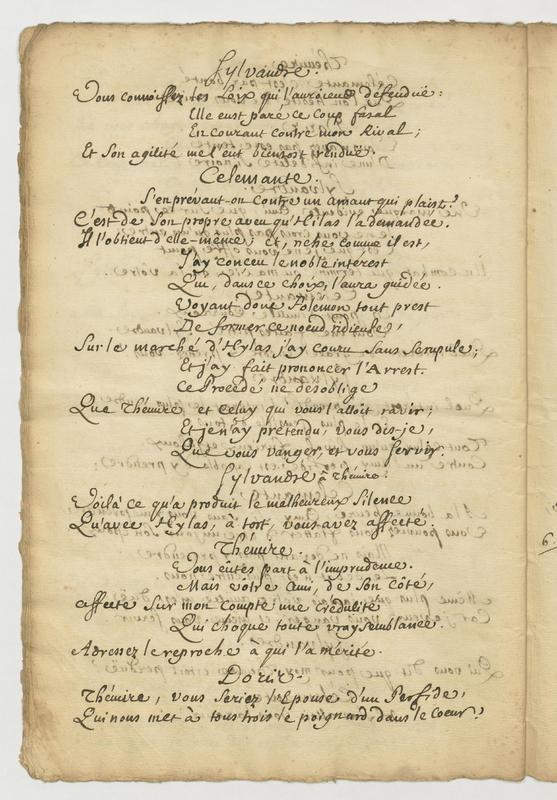 Sylvandre.
Vous connoissez les Loix qui l'auroient défendüe:
Elle eust paré ce Coup fatal
En courant contre mon Rival;
Et Son agilité me l'eut bientost rendüe.
Celemante.
S'en prévaut-on contre un amant qui plaist?
C'est de Son propre aveu qu'Hilas l'a demandée.
Il l'obtient d'elle-mence; et, riche comme il est,
J'ay conceu le noble interest
Qui, dans ce choix, l'aura guidée.
Voyant donc Polemon tout prest
De former ce noeud ridicule,
Sur le marché d'Hylas j'ay couru Sans Scrupule;
Et j'ay fait prononcer l'Arrest.
Ce Procedé ne desoblige
Que Thémire, et Celuy qui vous l'alloit ravir;
Et je n'ay prétendu, vous dis-je,
Que vous vanger, et vous Servir.
Sylvandre à Thémire.
Voilà ce qu'a produit le malheureux Silence
Qu'avec Hylas, à tort, vous avez affecté.
Thémire.
Vous eûtes part à l'imprudence.
Mais vôtre Ami, de Son côté,
affecte Sur mon compte une crédulité
Qui choque toute vraysemblance.
Adressez le reproche à qui l'a mérité.
Doris.
Thémire, vous Seriez l'Epouse d'un Perfide,
Qui nous met à tous trois le poignard dans le Coeur?
6.